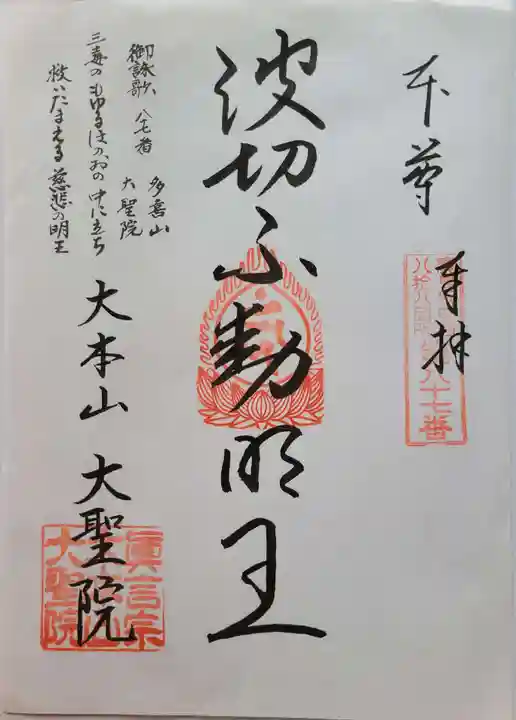 本尊
奉拝
八十七番
波切不動明王
御詠歌 八七番 多喜山 大聖院
三毒の もゆるほのおの 中に立ち
救いたまえる 慈悲の明王
大本山 大聖院
真言宗
大聖院